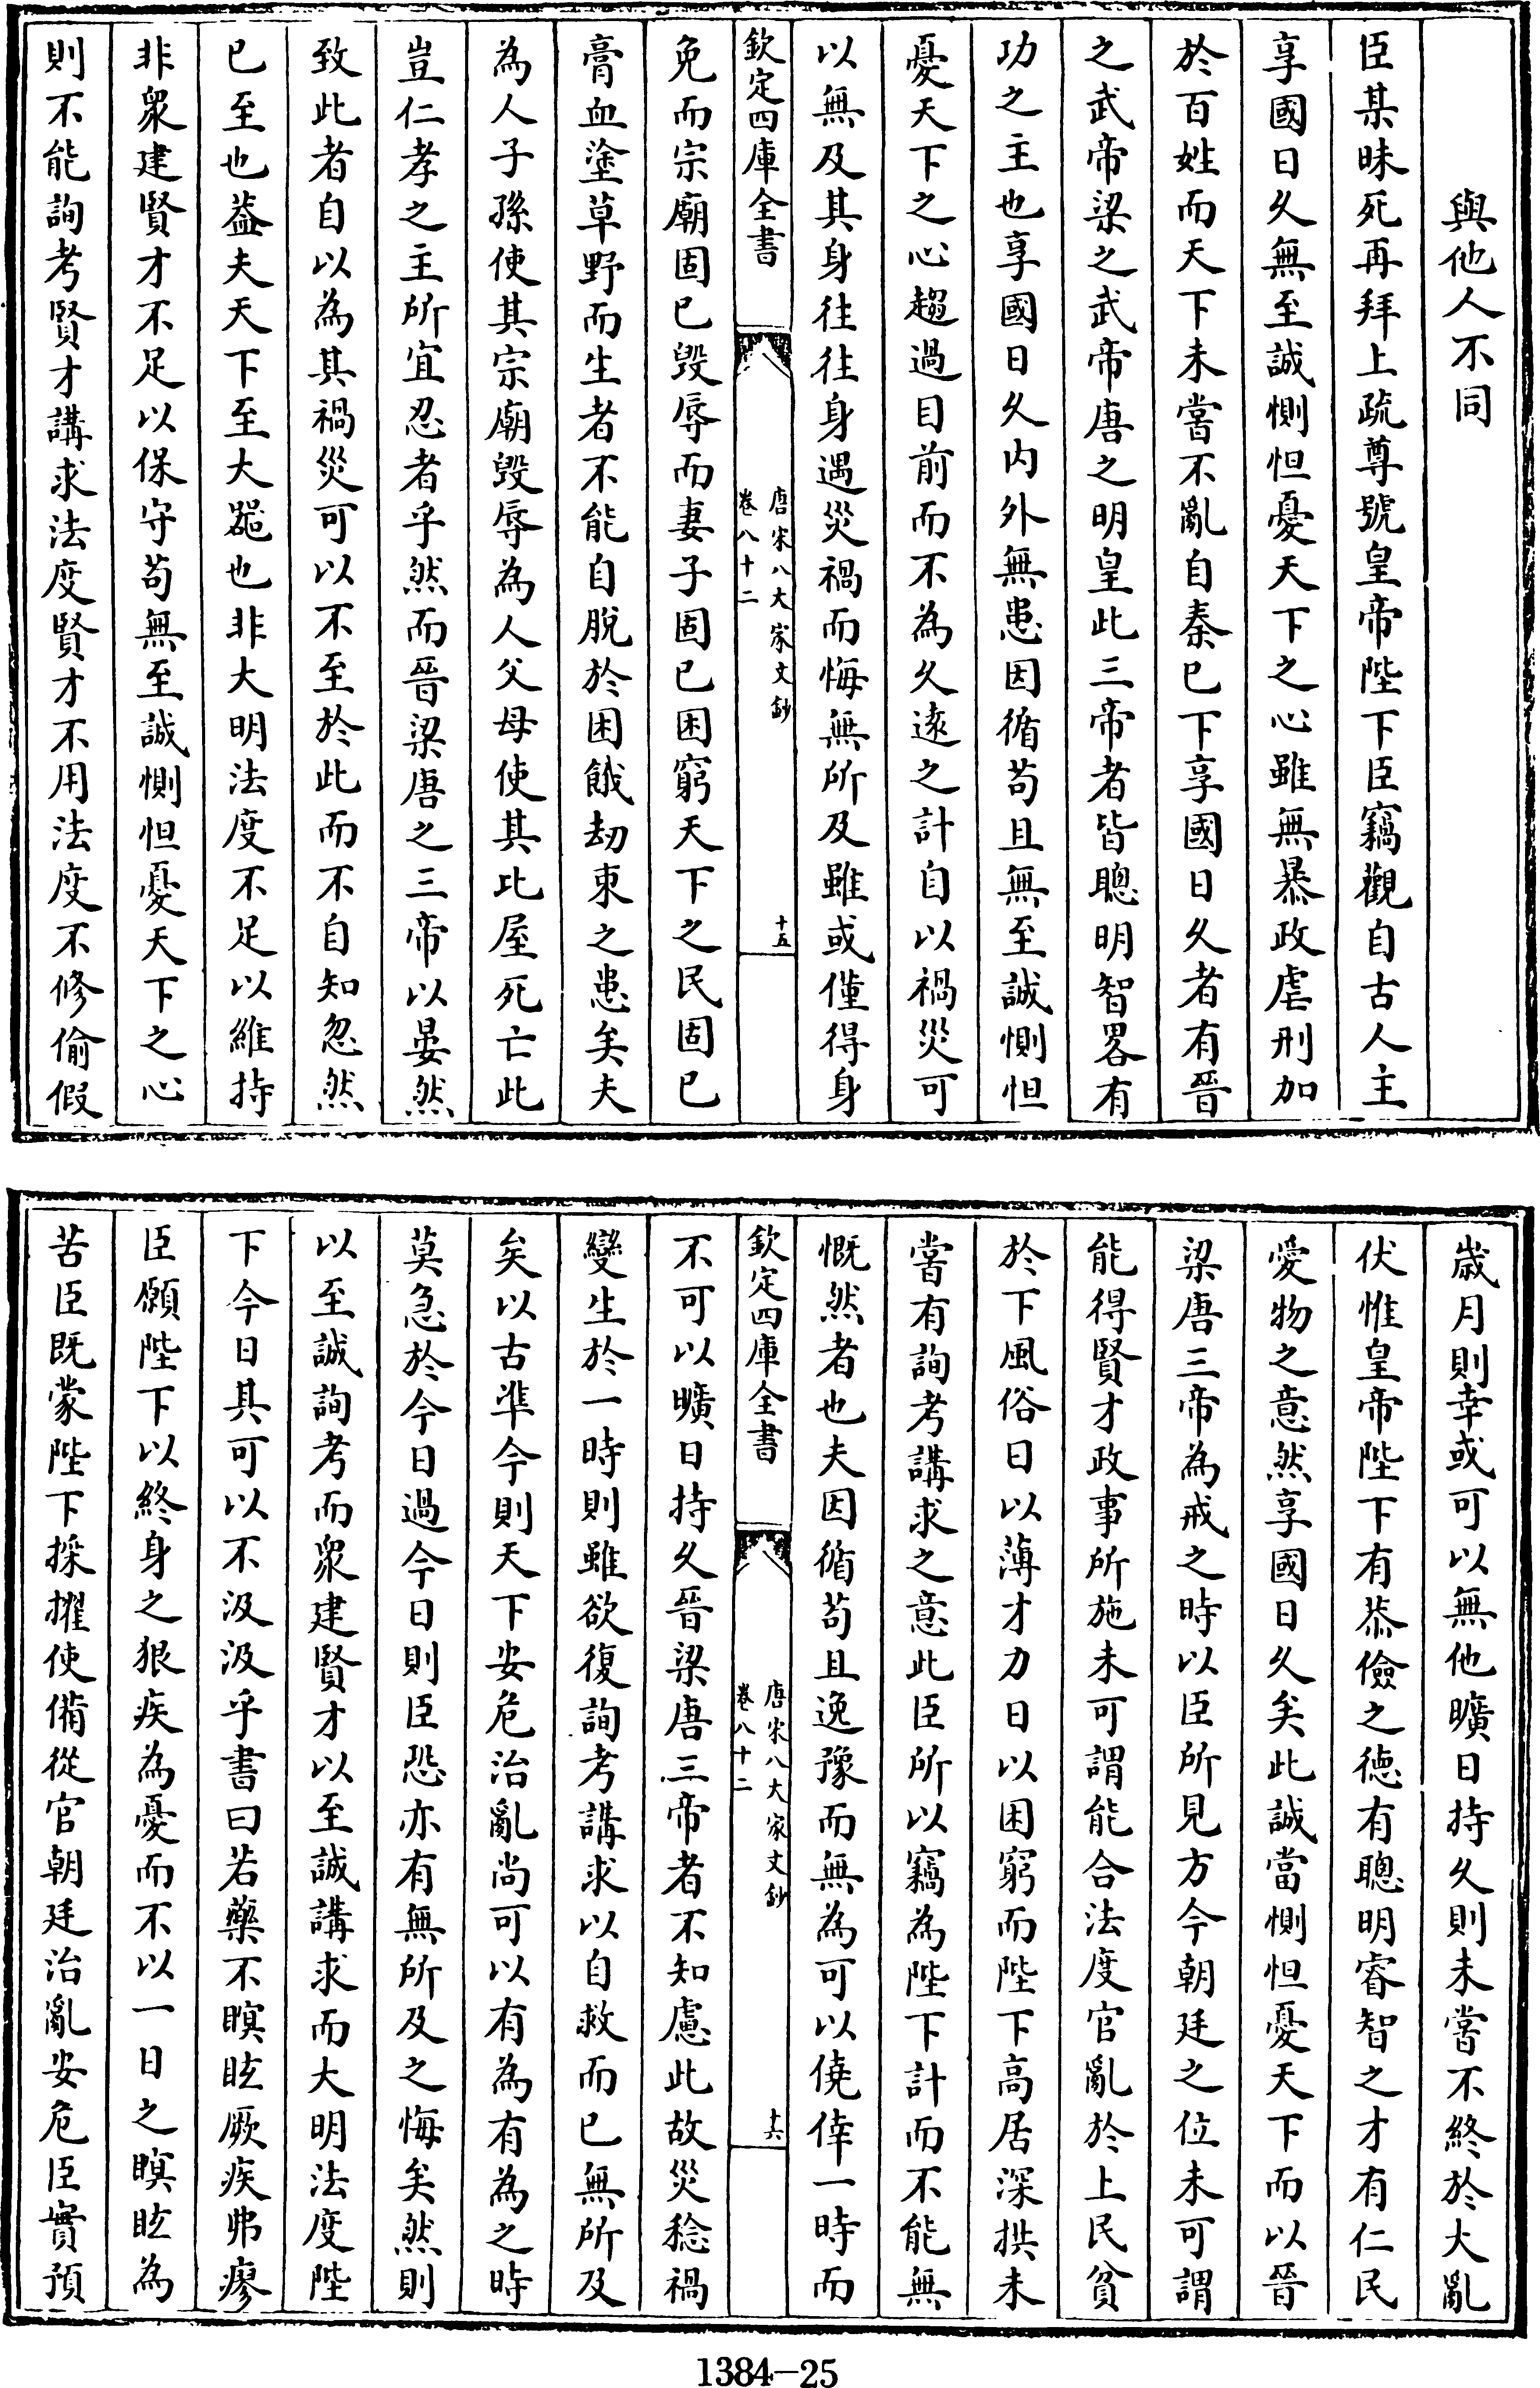 與他人不同
臣某昧死再拜上疏尊號皇帝陛下臣竊觀自古人主
享國日久無至誠惻怛憂天下之心雖無暴政虐刑加
於百姓而天下未嘗不亂自秦已下享國日久者有晉
之武帝梁之武帝唐之明皇此三帝者皆聰明智畧有
功之主也享國日久内外無患因循苟且無至誠惻怛
憂天下之心趨過目前而不為久逺之計自以禍災可
以無及其身往往身遇災禍而悔無所及雖或僅得身
欽定四庫全書
唐宋八大家文鈔
卷八十二
十五
免而宗廟固已毀辱而妻子固已困窮天下之民固已
膏血塗草野而生者不能自脫於困餓劫束之患矣夫
為人子孫使其宗廟毀辱為人父母使其比屋死亡此
豈仁孝之主所宜忍者乎然而晉梁唐之三帝以晏然
致此者自以為其禍災可以不至於此而不自知忽然
已至也葢夫天下至大噐也非大明法度不足以維持
非衆建賢才不足以保守苟無至誠惻怛憂天下之心
則不能詢考賢才講求法度賢才不用法度不修偷假
歳月則幸或可以無他曠日持久則未嘗不終於大亂
伏惟皇帝陛下有恭儉之徳有聰明睿智之才有仁民
愛物之意然享國日久矣此誠當惻怛憂天下而以晉
梁唐三帝為戒之時以臣所見方今朝廷之位未可謂
能得賢才政事所施未可謂能合法度官亂於上民貧
於下風俗日以薄才力日以困窮而陛下高居深拱未
嘗有詢考講求之意此臣所以竊為陛下計而不能無
慨然者也夫因循苟且逸豫而無為可以僥倖一時而
欽定四庫全書
唐宋八大家文鈔
卷八十二
十六
不可以曠日持久晉梁唐三帝者不知慮此故災稔禍
變生於一時則雖欲復詢考講求以自救而已無所及
矣以古凖今則天下安危治亂尚可以有為有為之時
莫急於今日過今日則臣恐亦有無所及之悔矣然則
以至誠詢考而衆建賢才以至誠講求而大明法度陛
下今日其可以不汲汲乎書曰若藥不瞑眩厥疾弗瘳
臣願陛下以終身之狼疾為憂而不以一日之瞑眩為
苦臣既蒙陛下採擢使備從官朝廷治亂安危臣實預
1384-25